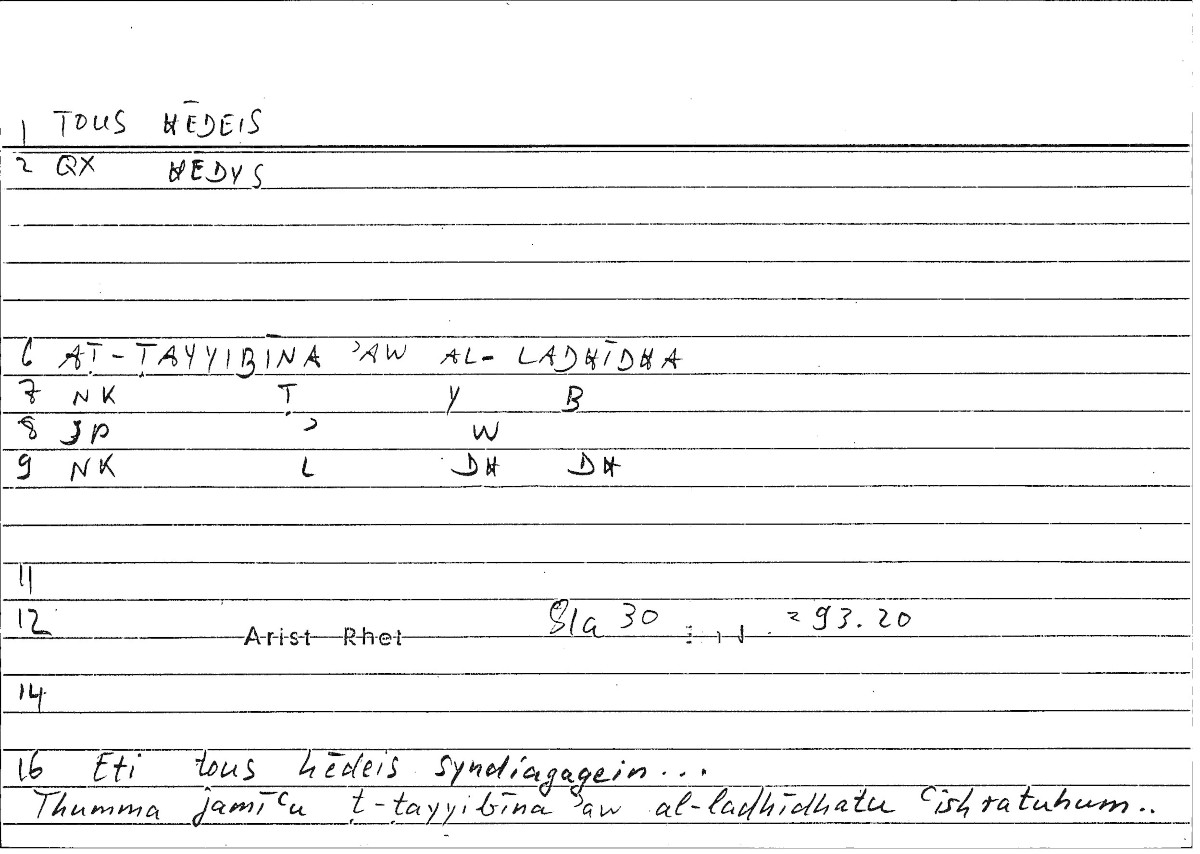 1 TOUS HĒDEIS
2 QX HĒDYS
6 AṬ-ṬAYYIBĪNA ʾAW AL-LADHĪDHA
7 NK Ṭ Y B
8 JP ʾ W
9 NK L DH DH
11
12 Arist Rhet 81a 30 = 93.20
14
16 Eti tous hēdeis syndiagagein...
Thumma jamīʿu ṭ-ṭayyibīna ʾaw al-ladhīdhatu ʿishratuhum..